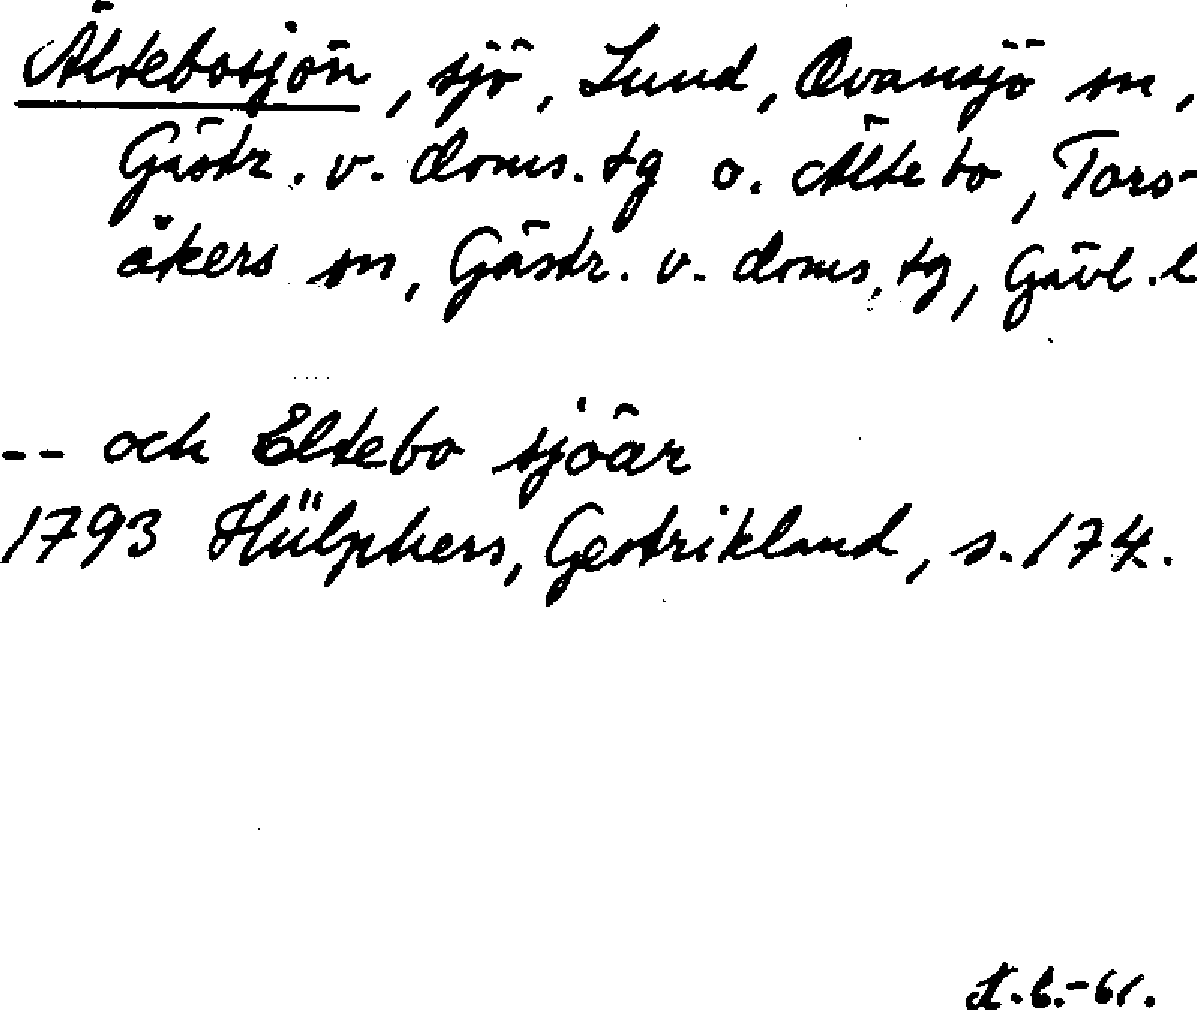 Ältebosjön, sjö, Lund, Ovansjö sn,
Gästr. v. doms. tg o. Ältebo, Tors-
åkers sn, Gästr. v. doms. tg, Gävl. l
-- och Eltebo sjöar
1793 Hülphers, Gestrikland, s. 174.